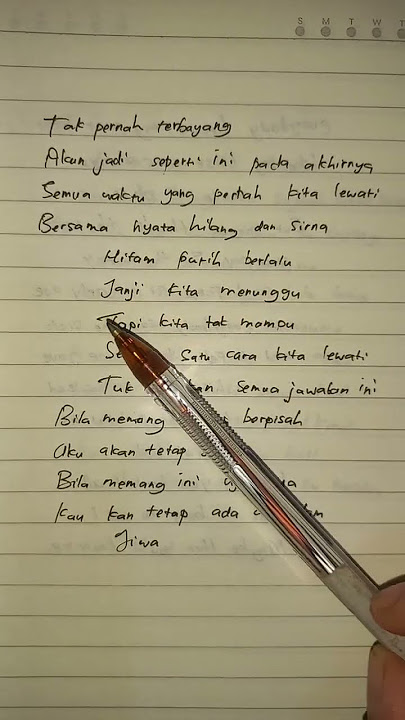 S M T W T
Tak pernah terbayang
Akan jadi seperti ini pada akhirnya
Semua waktu yang pertah kita lewati
Bersama nyata hilang dan sirna
Hitam putih berlalu
Janji kita menunggu
Tapi kita tak mampu
satu cara kita lewati
Tuk semua jawaban ini
Bila memang berpisah
Aku akan tetap
Bila memang ini
Kau kan tetap ada
Jiwa